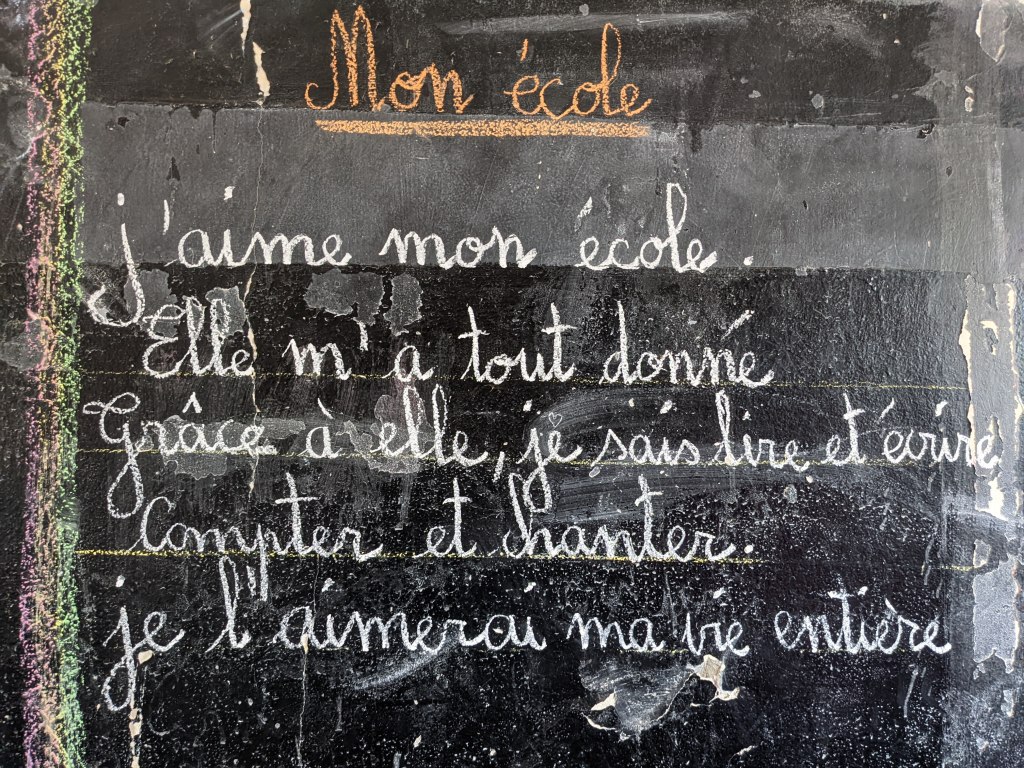 Mon école
j'aime mon école.
Elle m'a tout donné
Grâce à elle, je sais lire et écrire
Compter et chanter.
je l'aimerai ma vie entière